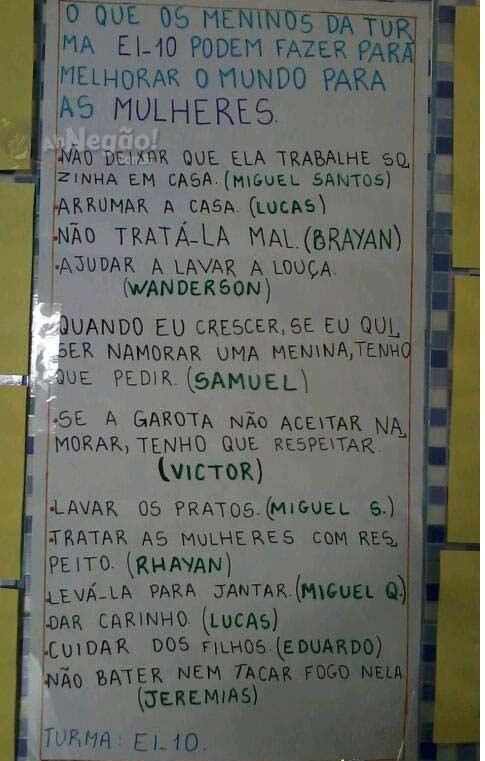 O QUE OS MENINOS DA TUR
MA EI-10 PODEM FAZER PARA
MELHORAR O MUNDO PARA
AS MULHERES.
Ah Negão!
•NÃO DEIXAR QUE ELA TRABALHE SO
ZINHA EM CASA. (MIGUEL SANTOS)
•ARRUMAR A CASA. (LUCAS)
•NÃO TRATÁ-LA MAL. (BRAYAN)
•AJUDAR A LAVAR A LOUÇA.
(WANDERSON)
QUANDO EU CRESCER, SE EU QUI
SER NAMORAR UMA MENINA, TENHO
QUE PEDIR. (SAMUEL)
•SE A GAROTA NÃO ACEITAR NA
MORAR, TENHO QUE RESPEITAR.
(VICTOR)
•LAVAR OS PRATOS. (MIGUEL S.)
•TRATAR AS MULHERES COM RES
PEITO. (RHAYAN)
LEVÁ-LA PARA JANTAR. (MIGUEL Q.)
•DAR CARINHO. (LUCAS)
•CUIDAR DOS FILHOS. (EDUARDO)
•NÃO BATER NEM TACAR FOGO NELA
(JEREMIAS)
TURMA: EI-10.